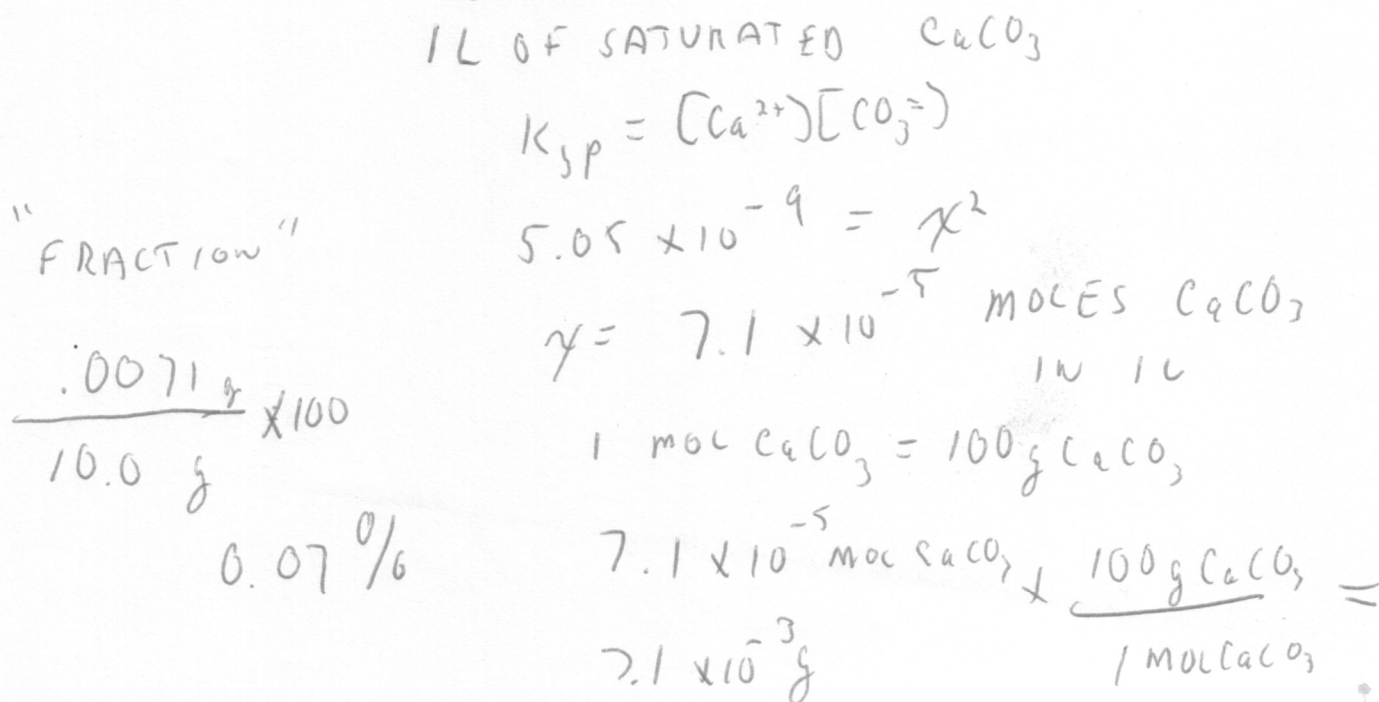 1L OF SATURATED CaCO₃
Ksp = [Ca²⁺][CO₃⁼]
5.05 x10⁻⁹ = x²
x = 7.1 x10⁻⁵ MOLES CaCO₃
IN 1L
1 MOL CaCO₃ = 100g CaCO₃
7.1 x 10⁻⁵ MOL CaCO₃ x 100g CaCO₃ =
1 MOL CaCO₃
7.1 x10⁻³ g
"FRACTION"
.0071 g x100
10.0 g
0.07 %